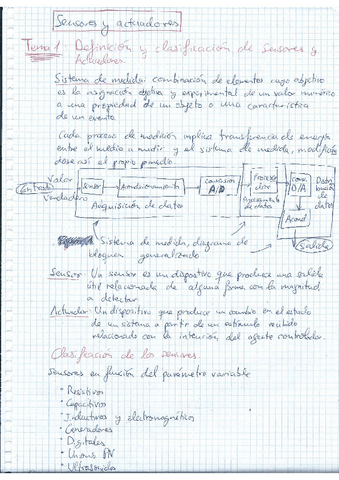 Sensores y actuadores
Tema 1: Definición y clasificación de Sensores y
Actuadores.
Sistema de medida: combinación de elementos cuyo objetivo
es la asignación objetiva y experimental de un valor numérico
a una propiedad de un objeto o una característica
de un evento.
Cada proceso de medición implica transferencia de energía
entre el medio a medir y el sistema de medida, modificán
dose así el propio
Entrada
Valor
verdadero
Sensor
Acondicionamiento
Adquisición de datos
conversion
A/D
Procesa
dor
Procesamiento
de datos
conv.
D/A
Acond
Distri
bución
de datos
Salida
Sistema de medida, diagrama de
bloques generalizado
Sensor: Un sensor es un dispositivo que produce una salida
útil relacionada de alguna forma con la magnitud
a detectar
Actuador: Un dispositivo que produce un cambio en el estado
de un sistema a partir de un estímulo recibido
relacionado con la intención del agente controlador.
Clasificación de los sensores.
Sensores en función del parámetro variable
• Resistivos
• Capacitivos
• Inductivos y electromagnéticos
• Generadores
• Digitales
• Uniones PN
• Ultrasonidos